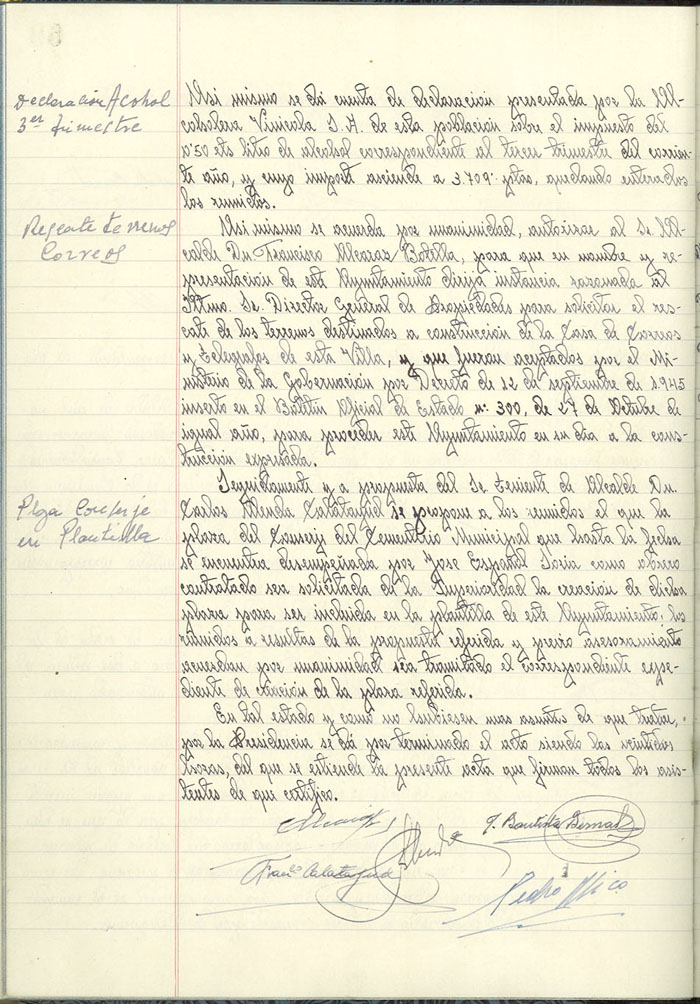 Declaración Acohol
3er trimestre
Asi mismo se dá cuenta de declaracion presentada por la Al-
coholera Vinicola S.A. de esta poblacion sobre el impuesto del
0'50 cts litro de alcohol correspondiente al tercer trimestre del corrien-
te año, y cuyo import asciende a 3.709 ptas, quedando enterados
los reunidos.
Rescate terrenos
Correos
Asi mismo se acuerda por unanimidad, autorizar al Sr. Al-
calde Dn. Francisco Alcaraz Botella, para que en nombre y re-
presentacion de este Ayuntamiento dirija instancia razonada al
Iltmo. Sr. Director General de Propiedades para solicitar el res-
cate de los terrenos destinados a construccion de la Casa de Correos
y Telegrafos de esta Villa, y que fueron aceptados por el Mi-
nisterio de la Gobernacion por Decreto de 12 de septiembre de 1.945
inserto en el Boletin Oficial de Estado nº 300, de 27 de Octubre de
igual año, para proceder este Ayuntamiento en su dia a la cons-
truccion expresada.
Plaza Conserje
en Plantilla
Seguidamente y a propuesta del Sr Teniente de Alcalde Dn.
Carlos Menda Calatayud se propone a los reunidos el que la
plaza del Conserje del Cementerio Municipal que hasta la fecha
se encuentra desempeñada por Jose Español Soria como obrero
contratado sea solicitada de la Superioridad la creacion de dicha
plaza para ser incluida en la plantilla de este Ayuntamiento; los
reunidos a resultas de la propuesta referida y previo asesoramiento
acuerdan por unanimidad sea tramitado el correspondiente expe-
diente de creacion de la plaza referida.
En tal estado y como no hubiesen mas asuntos de que tratar,
por la Presidencia se dá por terminado el acto siendo las veintidos
horas, del que se extiende la presente acta que firman todos los asis-
tentes de que certifico.
J. Bautista Bernad
Franco Calatayud
Pedro Mico